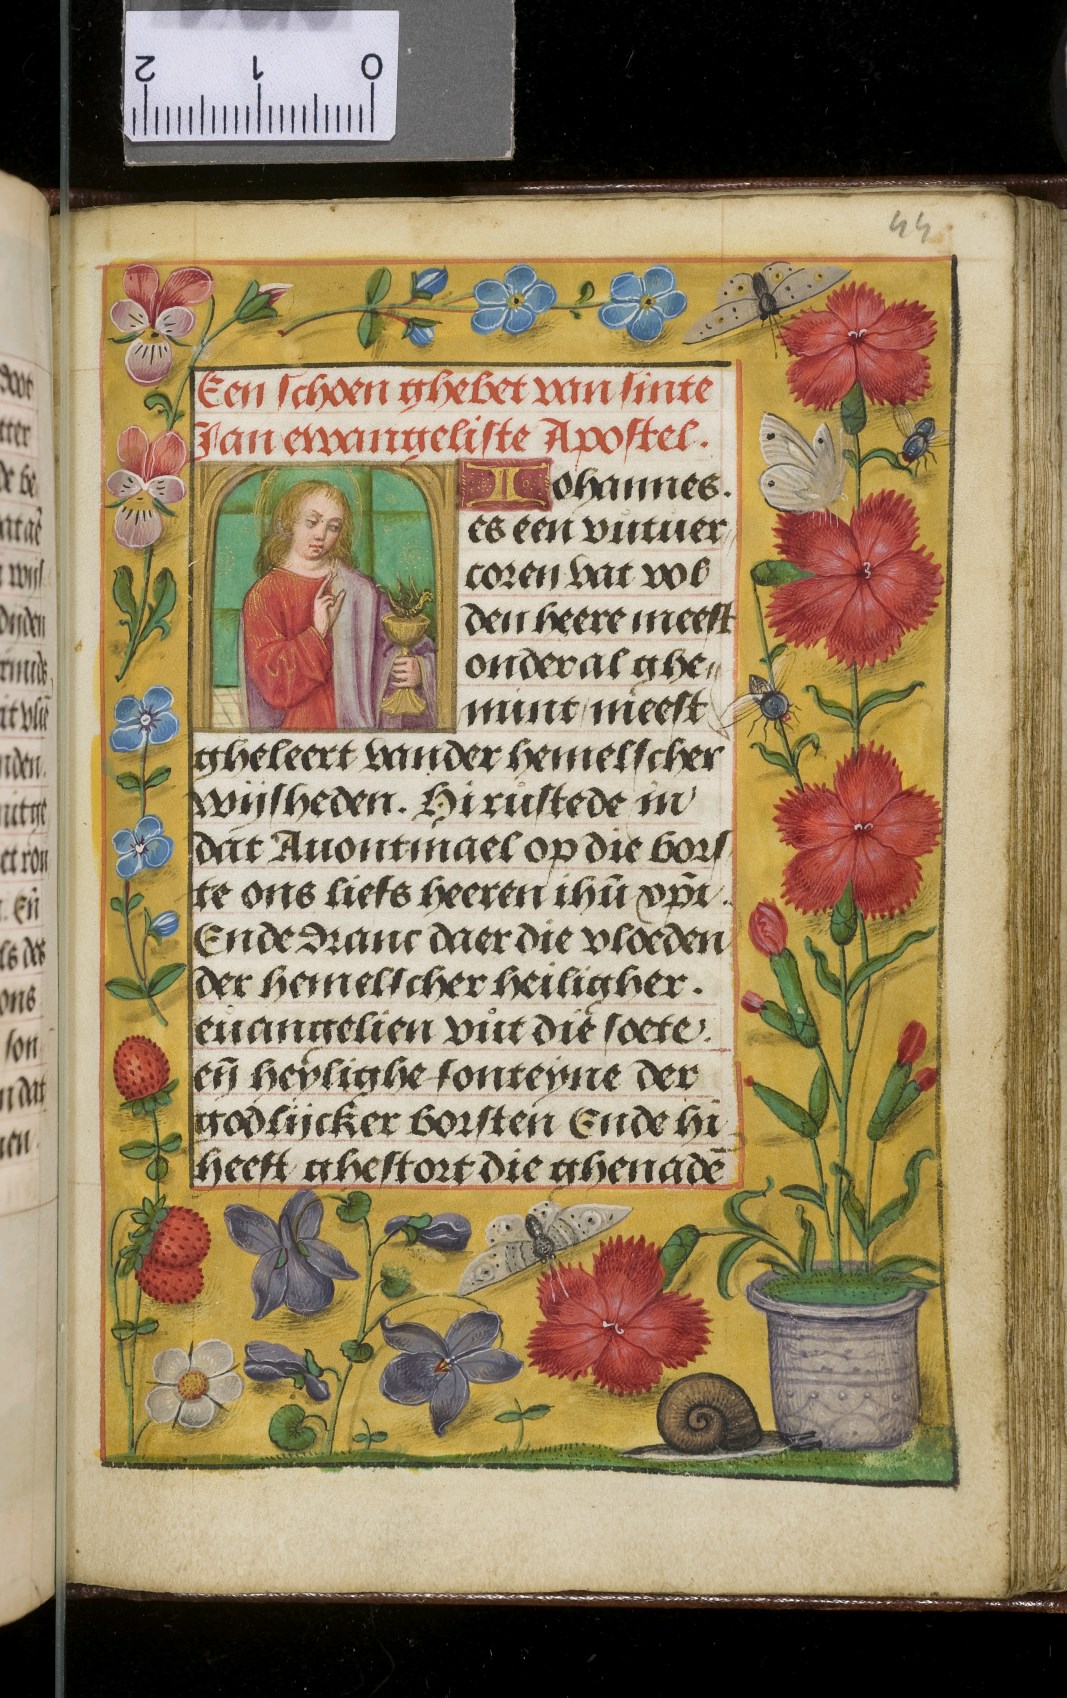 2 1 0
44
Een schoen ghebet van sinte
Jan ewangeliste Apostel.
Iohannes.
es een vutuer
coren vat vol
den heere meest
onder al ghe
mint meest
gheleert vander hemelscher
wijsheden. Hi rustede in
dat Auontmael op die bors
te ons liefs heeren ihū xpi.
Ende dranc daer die vloeden
der hemelscher heiligher.
euangelien vut die soete.
eñ heylighe fonteyne der
godlijcker borsten Ende hi
heeft ghestort die ghenadē